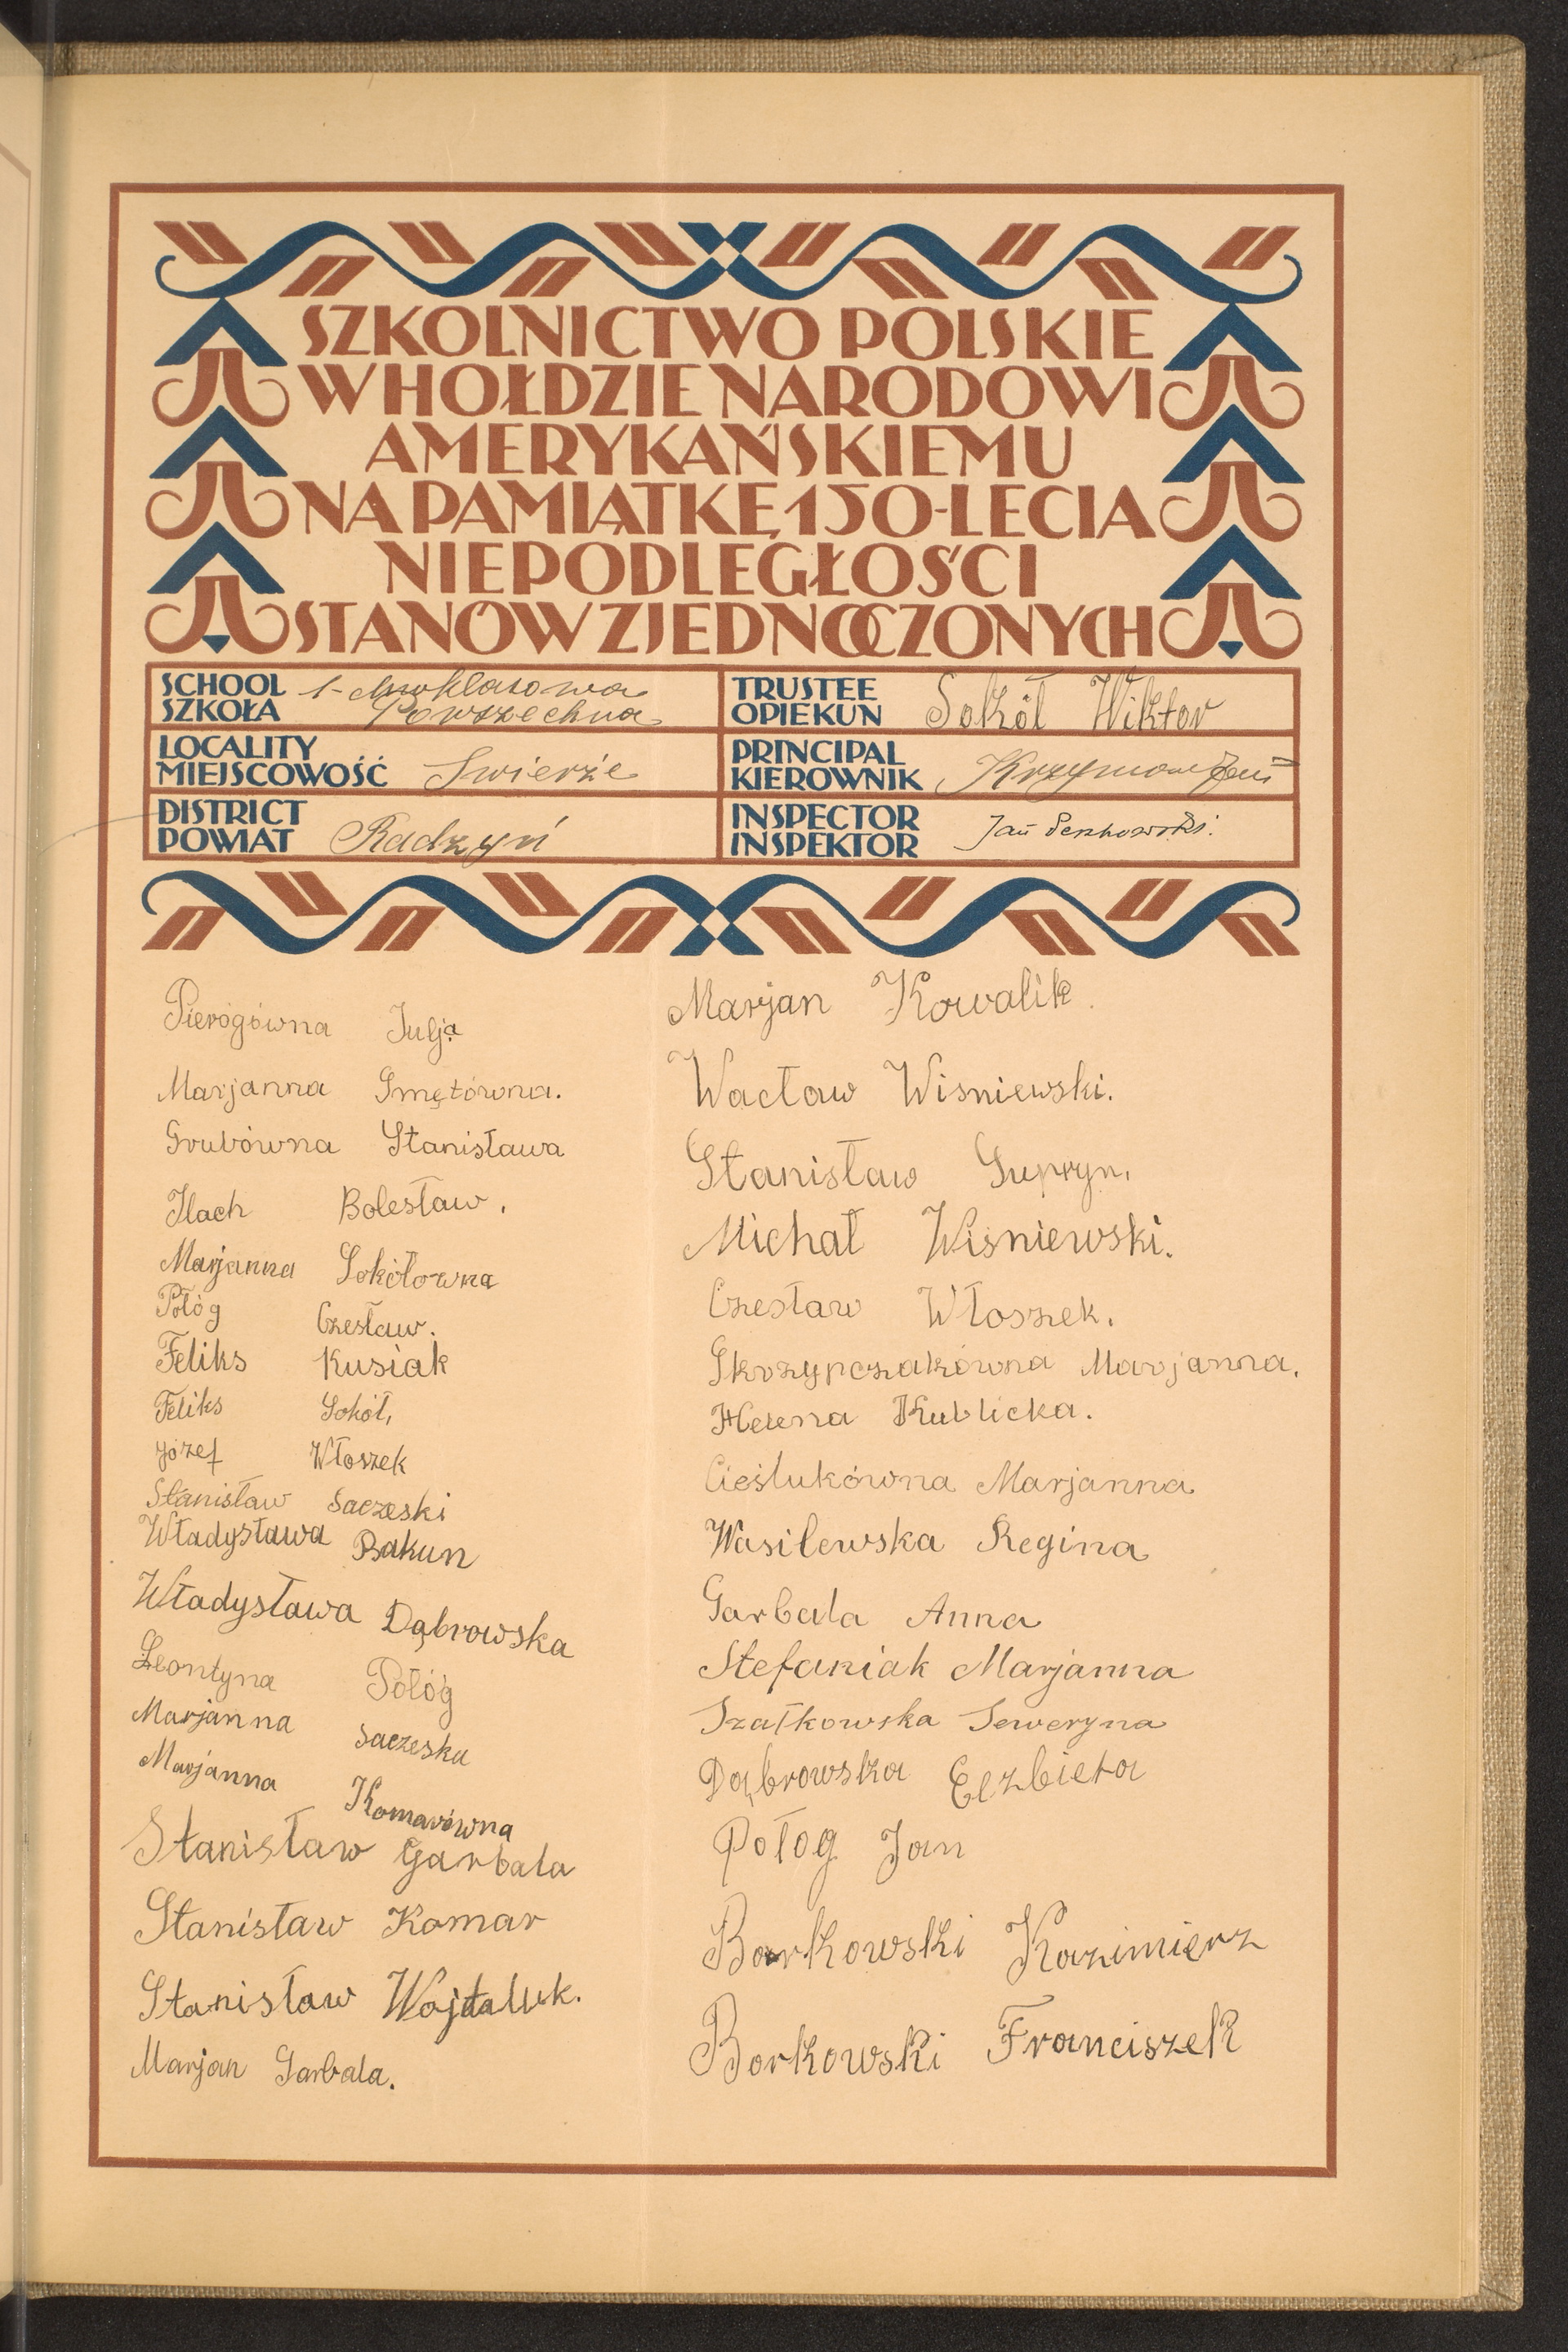 SZKOLNICTWO POLSKIE
W HOŁDZIE NARODOWI
AMERYKAŃSKIEMU
NA PAMIĄTKĘ 150-LECIA
NIEPODLEGŁOŚCI
STANÓW ZJEDNOCZONYCH
SCHOOL
SZKOŁA
1-dnoklasowa
Powszechna
LOCALITY
MIEJSCOWOŚĆ
Swierże
DISTRICT
POWIAT
Radzyń
TRUSTEE
OPIEKUN
Sokół Wiktor
PRINCIPAL
KIEROWNIK
INSPECTOR
INSPEKTOR
Jan
Pierógówna Julja
Marjanna Smętówna.
Grubówna Stanisława
Ilach Bolesław.
Marjanna Sokółowna
Połóg Czesław.
Feliks Kusiak
Feliks Sokół,
Józef Włoszek
Stanisław Saczeski
Władysława Bakun
Władysława Dąbrowska
Leontyna Połóg
Marjanna Saczeska
Marjanna Komarówna
Stanisław Garbala
Stanisław Komar
Stanisław Wojtaluk.
Marjan Garbala.
Marjan Kowalik.
Wacław Wisniewski.
Stanisław Supryn.
Michał Wiśniewski.
Czesław Włoszek.
Skrzypczakówna Marjanna.
Helena Kublicka.
Cieślukówna Marjanna
Wasilewska Regina
Garbala Anna
Stefaniak Marjanna
Szałkowska Seweryna
Dąbrowska Elzbieta
Połog Jan
Borkowski Kazimierz
Borkowski Franciszek